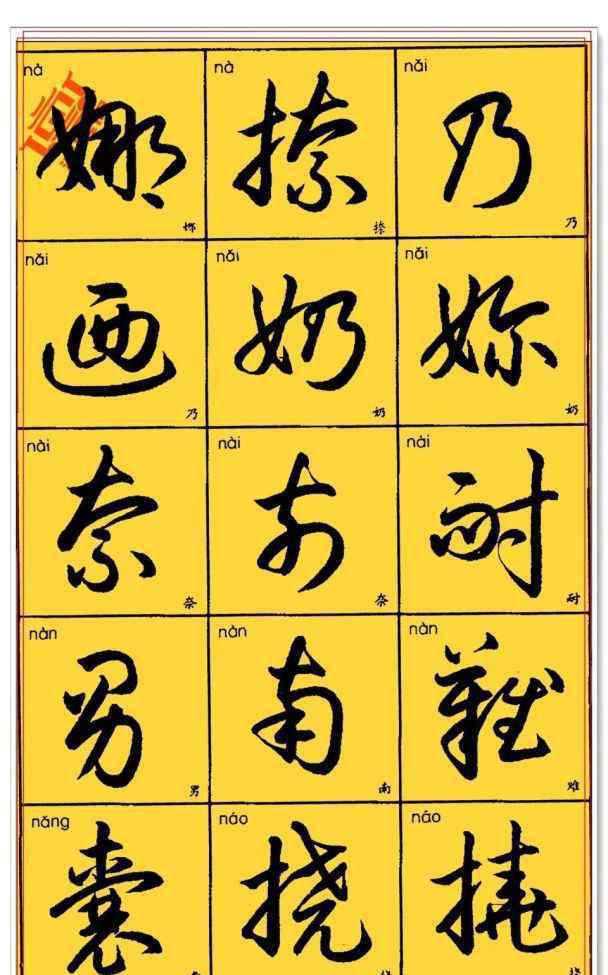 nà nà nǎi
娜 捺 乃
娜 捺 乃
nǎi nǎi nǎi
迺 奶 妳
乃 奶 奶
nài nài nài
奈 奈 耐
奈 奈 耐
nàn nàn nàn
男 南 難
男 南 难
nǎng náo náo
囊 挠 撓